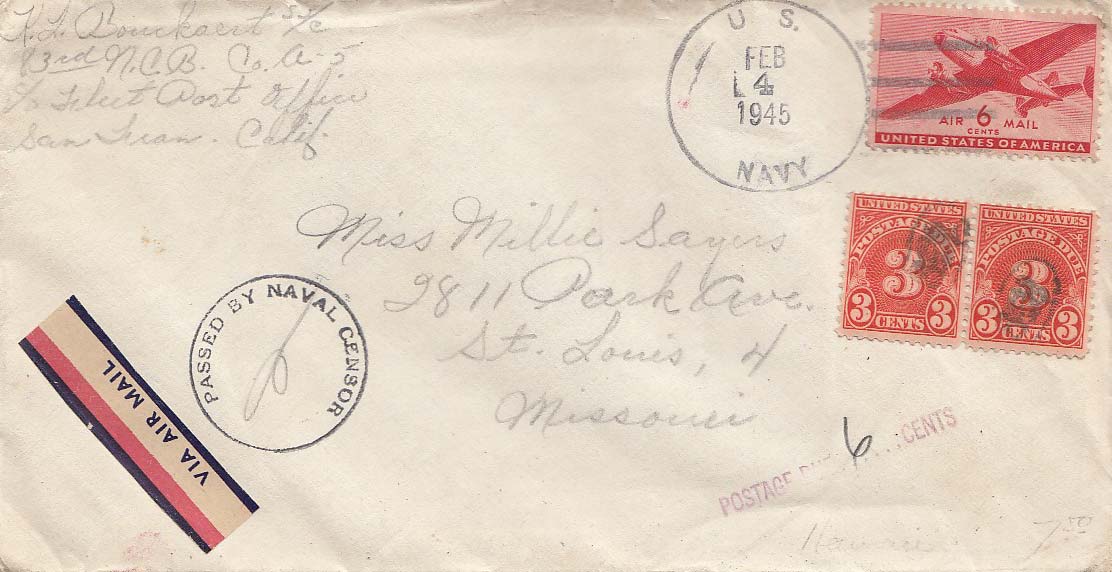 H.L. Bouckaert S/c
83rd N.C.B. Co. A-5
c/o Fleet Post Office
San Fran. Calif.
U. S.
FEB
4
1945
NAVY
AIR 6 MAIL
CENTS
UNITED STATES OF AMERICA
Miss Millie Sayers
2811 Park Ave.
St. Louis, 4
Missouri
UNITED STATES
POSTAGE DUE
3
3 CENTS 3
UNITED STATES
POSTAGE DUE
3
3 CENTS 3
PASSED BY NAVAL CENSOR
VIA AIR MAIL
POSTAGE DUE 6 CENTS
Hawaii 7.50